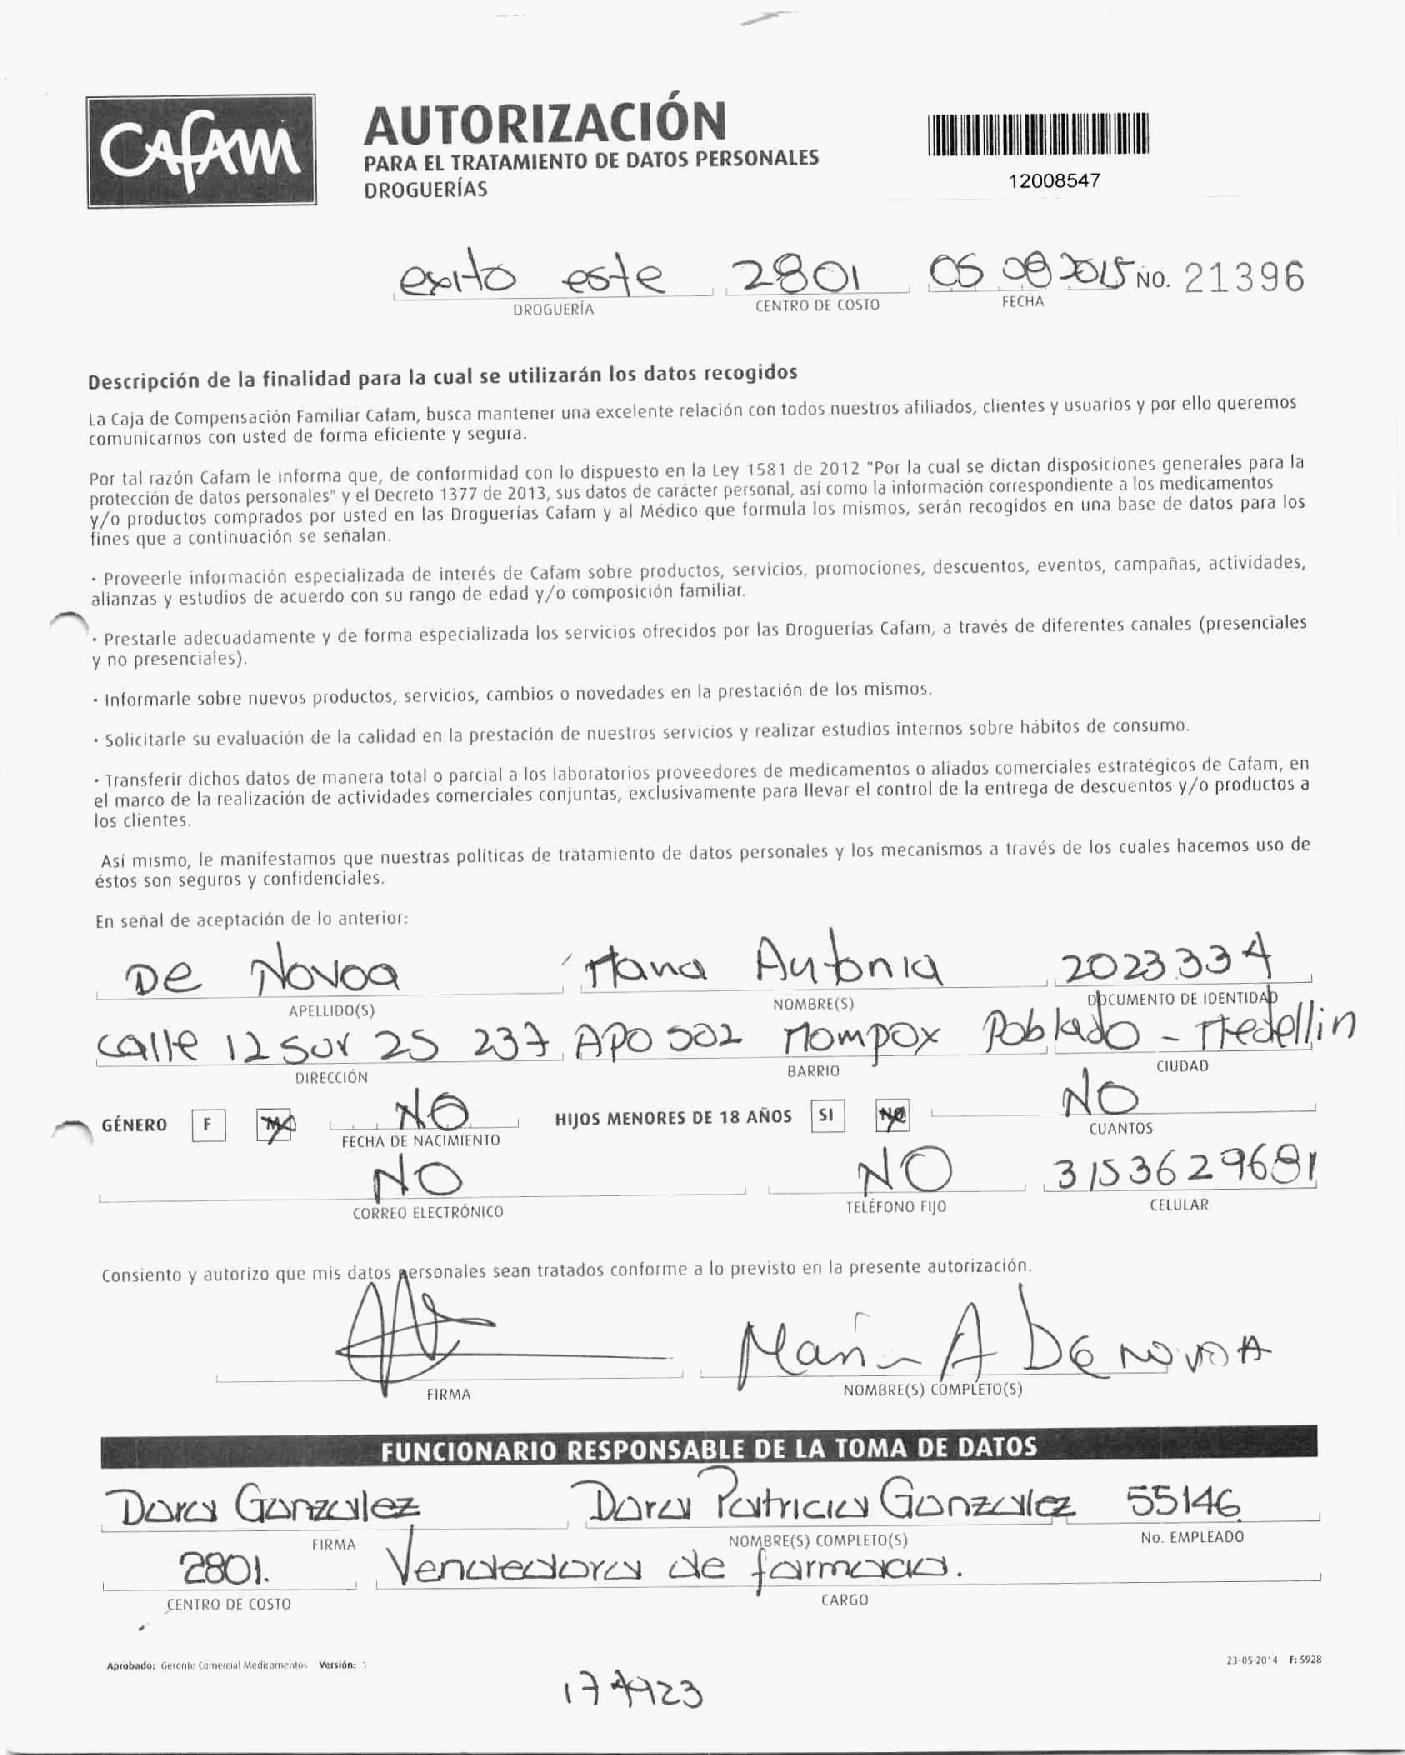 CAFAM
AUTORIZACIÓN
PARA EL TRATAMIENTO DE DATOS PERSONALES
DROGUERÍAS
12008547
exito este 2801 05 08 2015 NO. 21396
DROGUERÍA CENTRO DE COSTO FECHA
Descripción de la finalidad para la cual se utilizarán los datos recogidos
La Caja de Compensación Familiar Cafam, busca mantener una excelente relación con todos nuestros afiliados, clientes y usuarios y por ello queremos
comunicarnos con usted de forma eficiente y segura.
Por tal razón Cafam le informa que, de conformidad con lo dispuesto en la Ley 1581 de 2012 "Por la cual se dictan disposiciones generales para la
protección de datos personales" y el Decreto 1377 de 2013, sus datos de carácter personal, así como la información correspondiente a los medicamentos
y/o productos comprados por usted en las Droguerías Cafam y al Médico que formula los mismos, serán recogidos en una base de datos para los
fines que a continuación se señalan.
· Proveerle información especializada de interés de Cafam sobre productos, servicios, promociones, descuentos, eventos, campañas, actividades,
alianzas y estudios de acuerdo con su rango de edad y/o composición familiar.
· Prestarle adecuadamente y de forma especializada los servicios ofrecidos por las Droguerías Cafam, a través de diferentes canales (presenciales
y no presenciales).
· Informarle sobre nuevos productos, servicios, cambios o novedades en la prestación de los mismos.
· Solicitarle su evaluación de la calidad en la prestación de nuestros servicios y realizar estudios internos sobre hábitos de consumo.
· Transferir dichos datos de manera total o parcial a los laboratorios proveedores de medicamentos o aliados comerciales estratégicos de Cafam, en
el marco de la realización de actividades comerciales conjuntas, exclusivamente para llevar el control de la entrega de descuentos y/o productos a
los clientes.
Así mismo, le manifestamos que nuestras políticas de tratamiento de datos personales y los mecanismos a través de los cuales hacemos uso de
éstos son seguros y confidenciales.
En señal de aceptación de lo anterior:
De Novoa Maria Antonia 2023334
APELLIDO(S) NOMBRE(S) DOCUMENTO DE IDENTIDAD
calle 12 sur 25 237 APO 502 Mompox Poblado - Medellin
DIRECCIÓN BARRIO CIUDAD
GÉNERO F M NO HIJOS MENORES DE 18 AÑOS SI NO NO
FECHA DE NACIMIENTO CUANTOS
NO NO 3153629681
CORREO ELECTRÓNICO TELÉFONO FIJO CELULAR
Consiento y autorizo que mis datos personales sean tratados conforme a lo previsto en la presente autorización.
Maria A De Novoa
FIRMA NOMBRE(S) COMPLETO(S)
FUNCIONARIO RESPONSABLE DE LA TOMA DE DATOS
Dora Gonzalez Dora Patricia Gonzalez 55146
FIRMA NOMBRE(S) COMPLETO(S) No. EMPLEADO
2801. Vendedora de farmacia.
CENTRO DE COSTO CARGO
Aprobado: Gerente Comercial Medicamentos Versión: 1
23-05-2014 F: 5928
174923